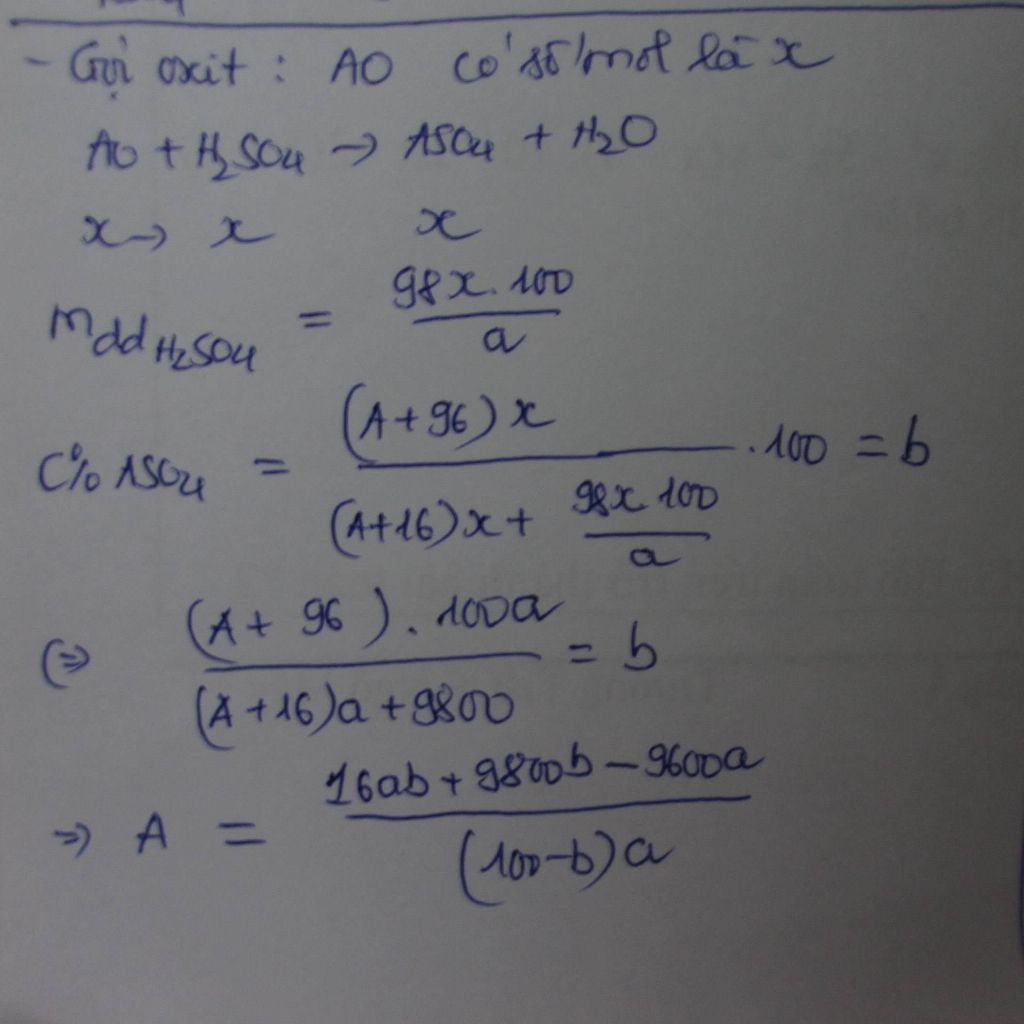 - Gọi oxit : AO có số mol là x
AO + H₂SO₄ → ASO₄ + H₂O
x → x x
mdd H₂SO₄ = 98x.100 / a
C% ASO₄ = (A+96)x / ((A+16)x + 98x.100 / a) .100 = b
(⇒ (A + 96).100a / ((A+16)a + 9800) = b
⇒ A = (16ab + 9800b - 9600a) / ((100-b)a)